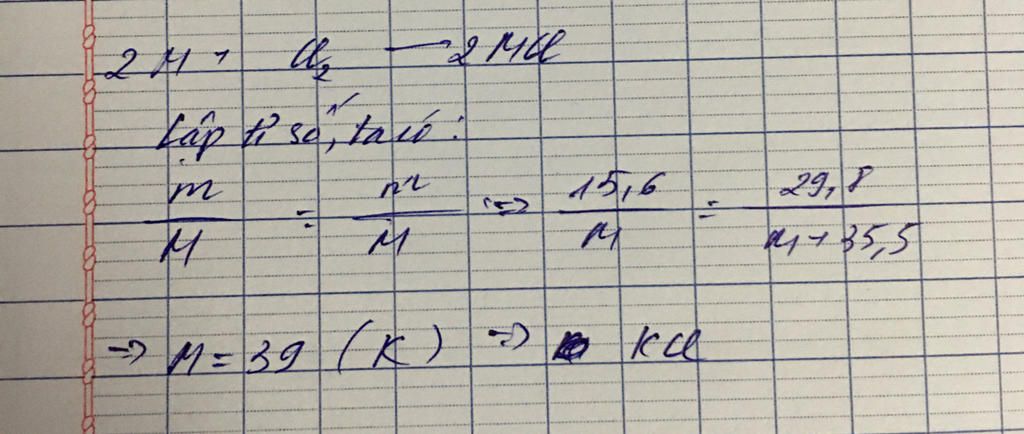 2 M + Cl₂ → 2 MCl
Lập tỉ số, ta có:
m/M = m/M => 15,6/M = 29,8/M+35,5
=> M = 39 (K) => KCl